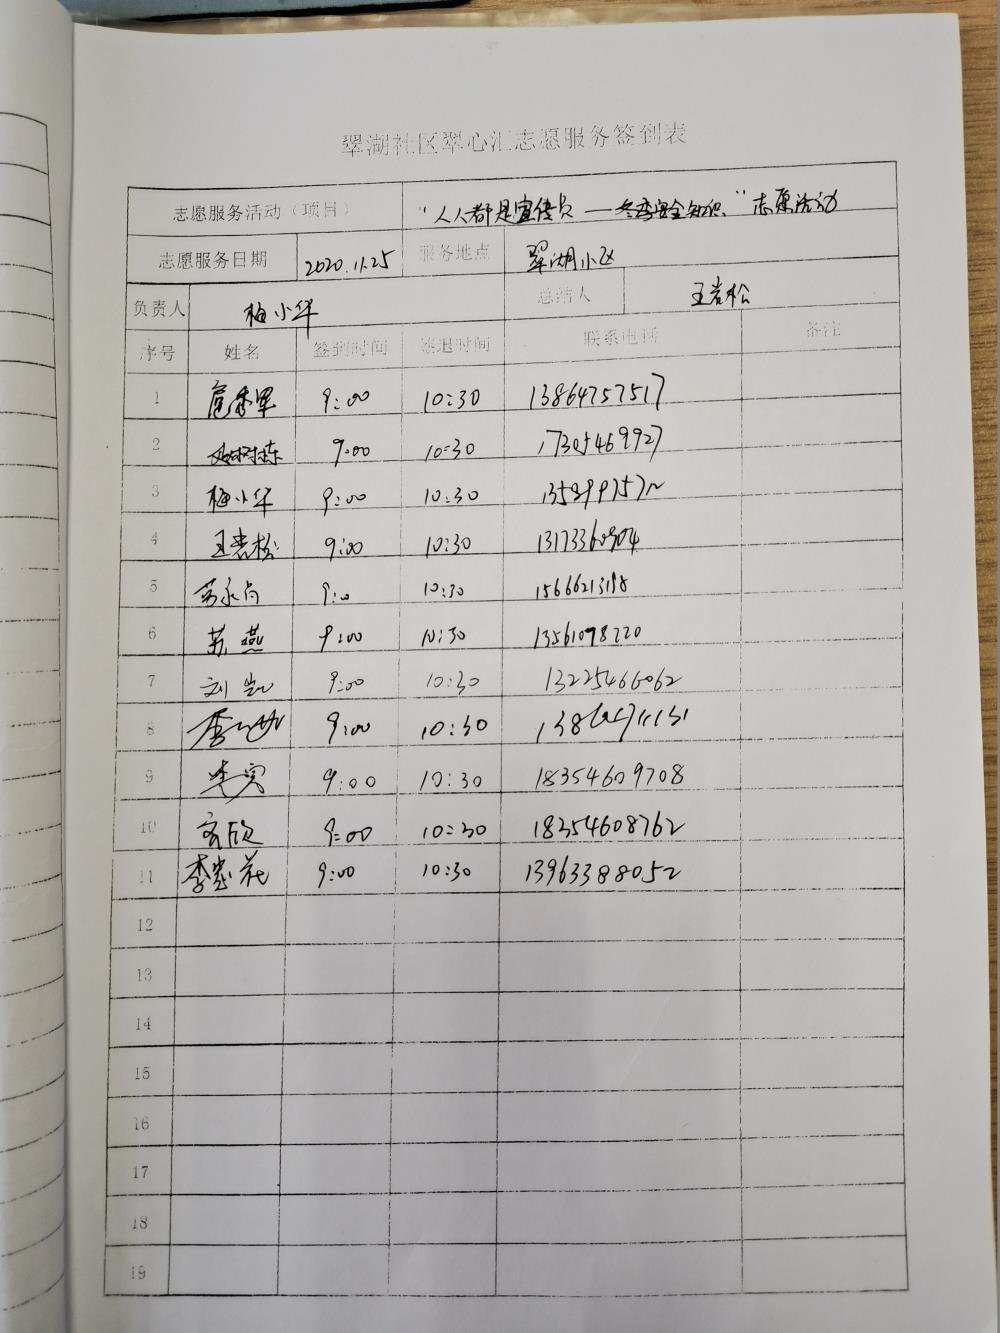 翠湖社区翠心汇志愿服务签到表
志愿服务活动（项目） “人人都是宣传员——冬季安全知识”志愿活动
志愿服务日期 2020.11.25 服务地点 翠湖小区
负责人 梅小华 总结人 王岩松
序号 姓名 签到时间 签退时间 联系电话 备注
1 9:00 10:30 13864757517
2 9:00 10:30 17305469927
3 梅小华 9:00 10:30
4 王岩松 9:00 10:30 13173360904
5 10:30
6 苏燕 9:00 10:30 13561098220
7 刘凯 9:00 10:30 13225466062
8 9:00 10:30
9 9:00 10:30 18354609708
10 9:00 10:30 18354608762
11 9:00 10:30 13963388052
12
13
14
15
16
17
18
19